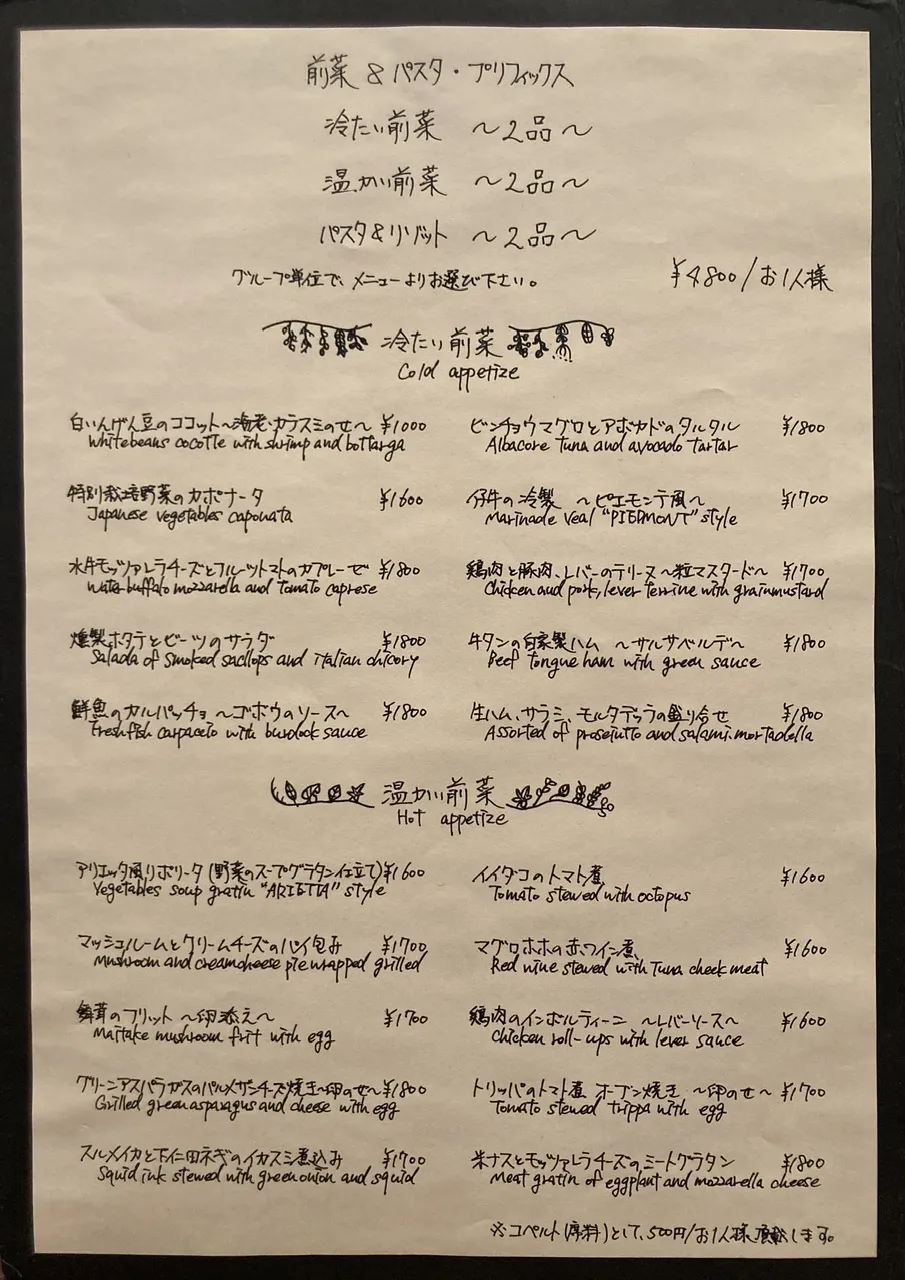 前菜 & パスタ・プリフィックス
冷たい前菜 〜2品〜
温かい前菜 〜2品〜
パスタ&リゾット 〜2品〜
グループ単位で、メニューよりお選び下さい。
¥4800/お1人様
冷たい前菜
Cold appetize
白いんげん豆のココット〜海老・カラスミのせ〜 ¥1000
Whitebeans cocotte with shrimp and bottarga
特別栽培野菜のカポナータ ¥1600
Japanese vegetables caponata
水牛モッツァレラチーズとフルーツトマトのカプレーゼ ¥1800
water buffalo mozzarella and tomato caprese
燻製ホタテとビーツのサラダ ¥1800
Salada of smoked sacllops and italian chicory
鮮魚のカルパッチョ 〜ゴボウのソース〜 ¥1800
Fresh fish carpaccio with burdock sauce
ビンチョウマグロとアボカドのタルタル ¥1800
Albacore tuna and avocado tartar
仔牛の冷製 〜ピエモンテ風〜 ¥1700
Marinade veal "PIEDMONT" style
鶏肉と豚肉、レバーのテリーヌ〜粒マスタード〜 ¥1700
Chicken and pork, lever terrine with grainmustard
牛タンの自家製ハム 〜サルサベルデ〜 ¥1800
Beef tongue ham with green sauce
生ハム、サラミ、モルタデッラの盛り合せ ¥1800
Assorted of prosciutto and salami.mortadella
温かい前菜
Hot appetize
アリエッタ風リボリータ(野菜のスープグラタン仕立て) ¥1600
Vegetables soup gratin "ARIETTA" style
マッシュルームとクリームチーズのパイ包み ¥1700
Mushroom and creamcheese pie wrapped grilled
舞茸のフリット 〜卵添え〜 ¥1700
Maitake mushroom frit with egg
グリーンアスパラガスのパルメザンチーズ焼き〜卵のせ〜 ¥1800
Grilled green asparagus and cheese with egg
スルメイカと下仁田ネギのイカスミ煮込み ¥1700
Squid ink stewed with green onion and squid
イイダコのトマト煮 ¥1600
Tomato stewed with octopus
マグロホホの赤ワイン煮 ¥1600
Red wine stewed with Tuna cheek meat
鶏肉のインボルティーニ 〜レバーソース〜 ¥1600
Chicken roll-ups with lever sauce
トリッパのトマト煮 オーブン焼き 〜卵のせ〜 ¥1700
Tomato stewed trippa with egg
米ナスとモッツァレラチーズのミートグラタン ¥1800
Meat gratin of eggplant and mozzarella cheese
※コペルト(席料)として、500円/お1人様 頂戴します。